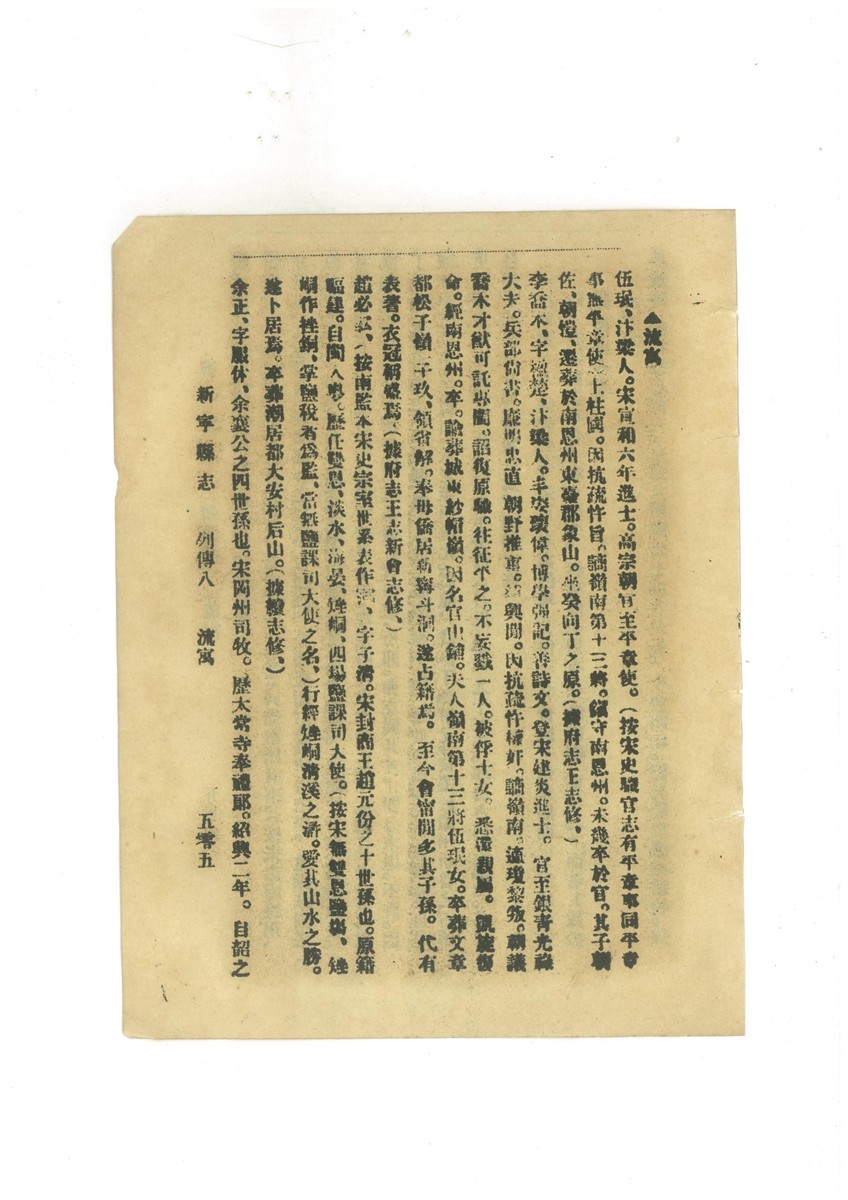 ▲流寓
伍珉、汴梁人。宋宣和六年進士。高宗朝官至平章使。（按宋史職官志有平章事同平章
事無平章使）上柱國。因抗疏忤旨。謫嶺南第十三將。鎮守南恩州。未幾卒於官。其子朝
佐、朝愷、遷葬於南恩州東臺郡象山。坐癸向丁之原。（據府志王志修、）
李喬木、字 楚、汴梁人。丰姿瓌偉。博學强記。善詩文。登宋建炎進士。官至銀青光祿
大夫。兵部尚書。廉明忠直 朝野推重。紹興間。因抗疏忤權奸。謫嶺南。適瓊黎叛。朝議
喬木才猷可託專閫。詔復原職。往征平之。不妄戮一人。被俘士女。悉還親屬。凱旋復
命。經南恩州。卒。諭葬城東紗帽嶺。因名官山鋪。夫人嶺南第十三將伍珉女。卒葬文章
都松子嶺 子玖、領省解。奉母僑居新寧斗洞。遂占籍焉。至今會甯間多其子孫。代有
表著。衣冠稱盛焉。（據府志王志新會志修、）
趙必 、（按南監本宋史宗室世系表作 、字子 。宋封商王趙元份之十世孫也。原籍
福建。自閩入粵。歷任雙恩、淡水、海晏、矬峒、四場鹽課司大使。（按宋無雙恩鹽場、矬
峒作挫銅、掌鹽稅者爲監、當無鹽課司大使之名、）行經矬峒淸溪之滸。愛其山水之勝。
遂卜居焉。卒葬潮居都大安村后山。（據 志修、）
余正、字服休、余襄公之四世孫也。宋閬州司牧。歷太常寺奉禮郎。紹興二年。自韶之
新寧縣志 列傳八 流寓 五零五